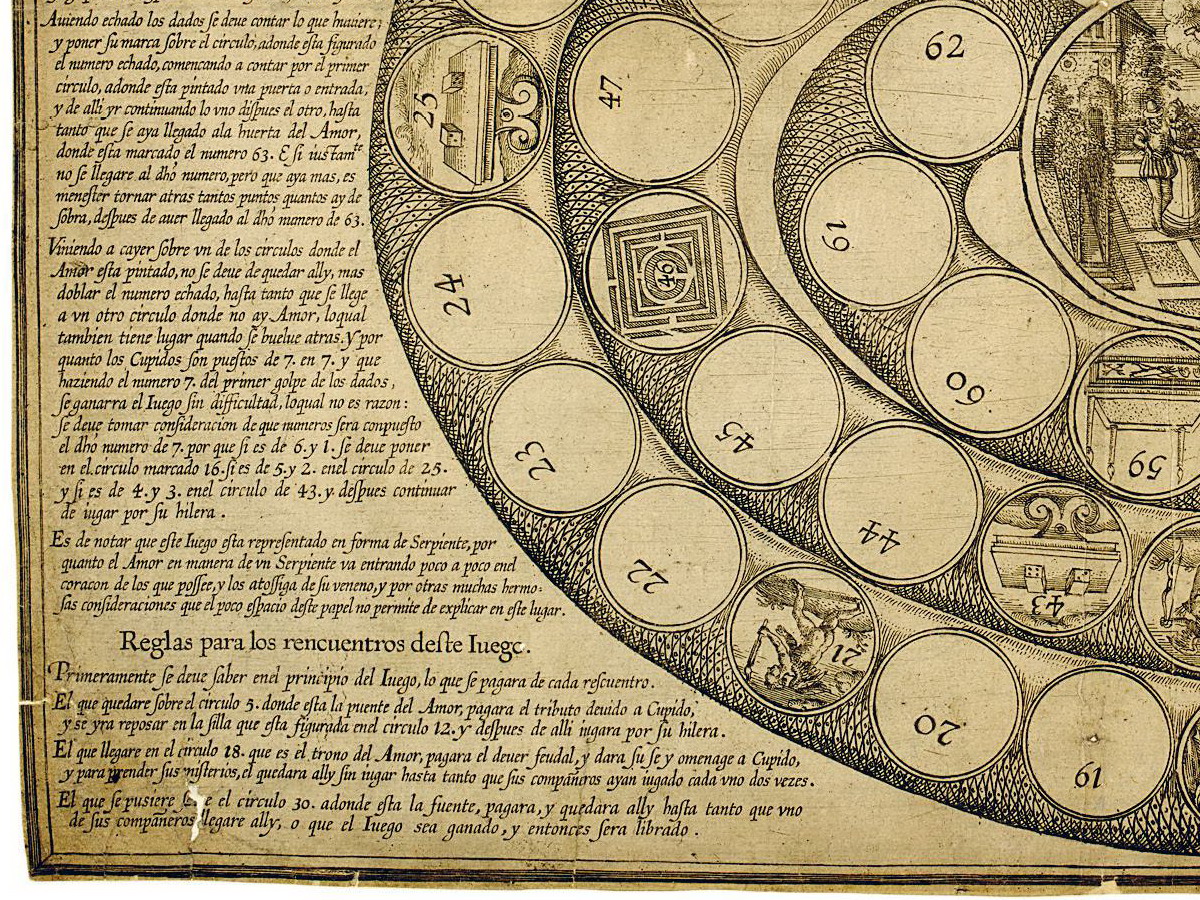 Auiendo echado los dados se deve contar lo que huuiere;
y poner su marca sobre el circulo, adonde esta figurado
el numero echado, comencando a contar por el primer
circulo, adonde esta pintado vna puerta o entrada,
y de alli yr continuando lo vno dispues el otro, hasta
tanto que se aya llegado ala huerta del Amor,
donde esta marcado el numero 63. E si iustamte
no se llegare al dho numero, pero que aya mas, es
menester tornar atras tantos puntos quantos ay de
sobra, despues de auer llegado al dho numero de 63.
Viniendo a cayer sobre vn de los circulos donde el
Amor esta pintado, no se deve de quedar ally, mas
doblar el numero echado, hasta tanto que se llege
a vn otro circulo donde no ay Amor, loqual
tambien tiene lugar quando se buelue atras. Y por
quanto los Cupidos son puestos de 7. en 7. y que
haziendo el numero 7. del primer golpe de los dados,
se ganarra el Iuego sin difficultad, loqual no es razon:
se deve tomar consideracion de que numeros sera conpuesto
el dho numero de 7. por que si es de 6. y 1. se deve poner
en el circulo marcado 16. si es de 5. y 2. enel circulo de 25.
y si es de 4. y 3. enel circulo de 43. y despues continuar
de iugar por su hilera.
Es de notar que este Iuego esta representado en forma de Serpiente, por
quanto el Amor en manera de vn Serpiente va entrando poco a poco enel
coracon de los que possee, y los atossiga de su veneno, y por otras muchas hermo:
sas consideraciones que el poco espacio deste papel no permite de explicar en este lugar.
Reglas para los rencuentros deste Iuego.
Primeramente se deve saber enel principio del Iuego, lo que se pagara de cada rescuentro.
El que quedare sobre el circulo 5. donde esta la puente del Amor, pagara el tributo deuido a Cupido,
y se yra reposar en la silla que esta figurada enel circulo 12. y despues de alli iugara por su hilera.
El que llegare en el circulo 18. que es el trono del Amor, pagara el dever feudal, y dara su fe y omenage a Cupido,
y para prender sus misterios, el quedara ally sin iugar hasta tanto que sus compañeros ayan iugado cada vno dos vezes.
El que se pusiere el circulo 30. adonde esta la fuente, pagara, y quedara ally hasta tanto que vno
de sus compañeros llegare ally, o que el Iuego sea ganado, y entonces sera librado.
25
47
62
24
46
61
23
45
60
59
22
44
43
21
20
19